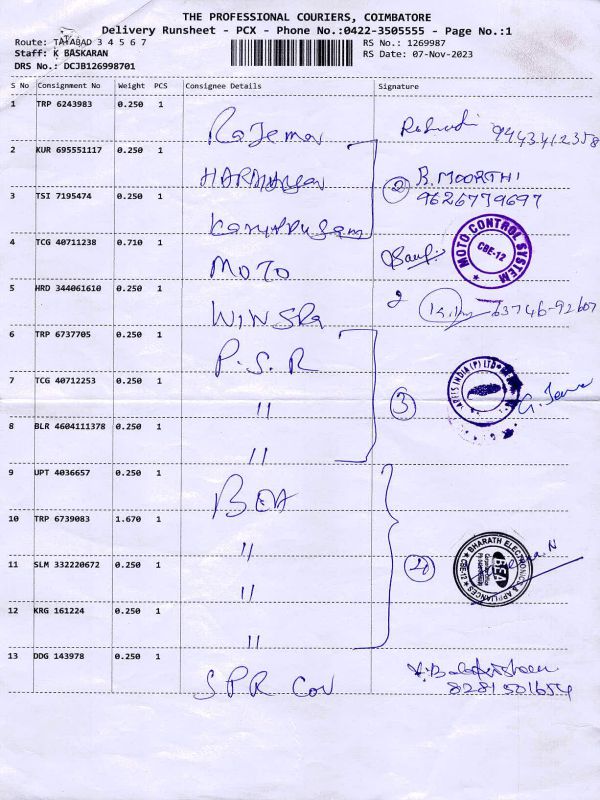 THE PROFESSIONAL COURIERS, COIMBATORE
Delivery Runsheet - PCX - Phone No.:0422-3505555 - Page No.:1
Route: TATABAD 3 4 5 6 7
RS No.: 1269987
Staff: K BASKARAN
RS Date: 07-Nov-2023
DRS No.: DCJB126998701
S No Consignment No Weight PCS Consignee Details Signature
1 TRP 6243983 0.250 1
9943412358
2 KUR 695551117 0.250 1
2 B. MOORTHI
9626779697
3 TSI 7195474 0.250 1
4 TCG 40711238 0.710 1 MOTO
MOTO CONTROL SYSTEM
CBE-12
5 HRD 344061610 0.250 1
63746-92607
6 TRP 6737705 0.250 1 P.S.R
7 TCG 40712253 0.250 1 "
3
INDIA (P) LTD
8 BLR 4604111378 0.250 1 "
9 UPT 4036657 0.250 1 BEA
10 TRP 6739083 1.670 1 "
11 SLM 332220672 0.250 1 "
4
BHARATH ELECTRONICS & APPLIANCES
BEA
CBE-12
12 KRG 161224 0.250 1 "
13 DDG 143978 0.250 1 SPR Con
8281501654